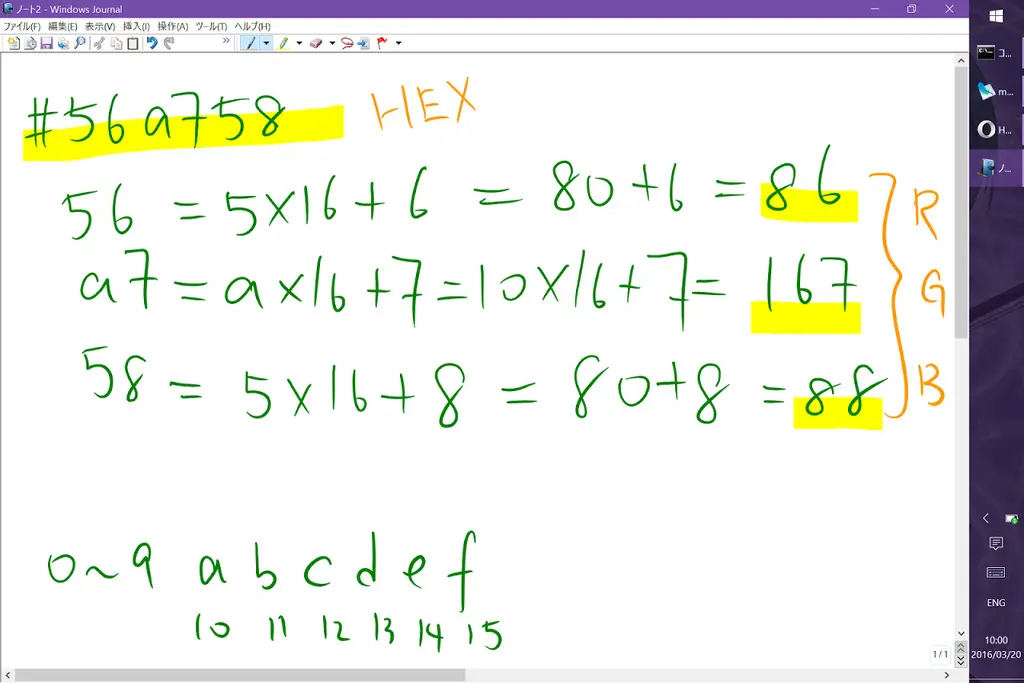 ノート2 - Windows Journal
ファイル(F) 編集(E) 表示(V) 挿入(I) 操作(A) ツール(T) ヘルプ(H)
#56a758 HEX
56 = 5×16+6 = 80+6 = 86 R
a7 = a×16+7=10×16+7= 167 G
58 = 5×16+8 = 80+8 = 88 B
0~9 a b c d e f
10 11 12 13 14 15
1/1
コ...
m...
H...
ノ...
ENG
10:00
2016/03/20